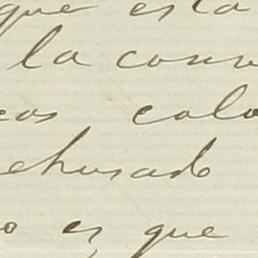 que esta
la conv
cos colo
rehusado
o es que